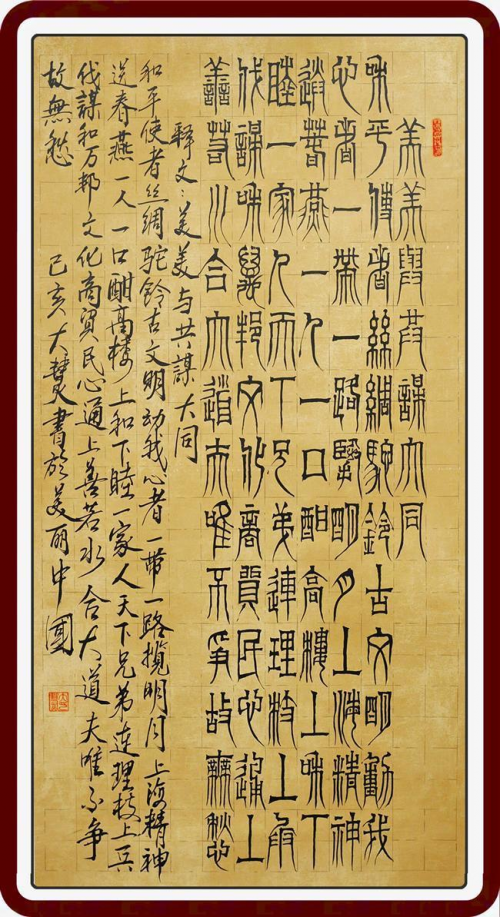 美美與共謀大同
和平使者絲綢駝鈴古文明動我
心者一帶一路攬明月上海精神
送春燕一人一口酣高樓上和下
睦一家人天下兄弟連理枝上兵
伐謀和萬邦文化商貿民心通上
善若水合大道夫唯不爭故無愁
釋文：美美与共謀大同
和平使者丝綢駝鈴古文明动我心者一带一路攬明月上海精神
送春燕一人一口酣高樓上和下睦一家人天下兄弟连理枝上兵
伐謀和万邦文化商貿民心通上善若水合大道夫唯不争
故無愁 己亥大書於美丽中國